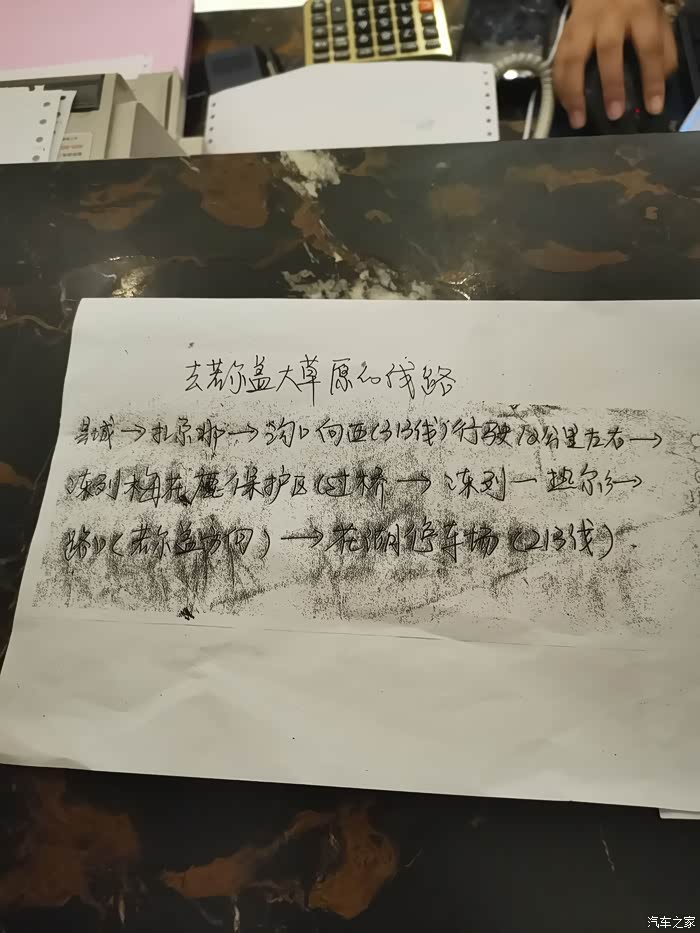 去若尔盖大草原的线路
县城→扎尕那→沟口向西(313线)行驶18公里左右→
冻列梅花鹿保护区(过桥→冻列—热尔→
路口(若尔盖方向)→花湖停车场(213线)
汽车之家